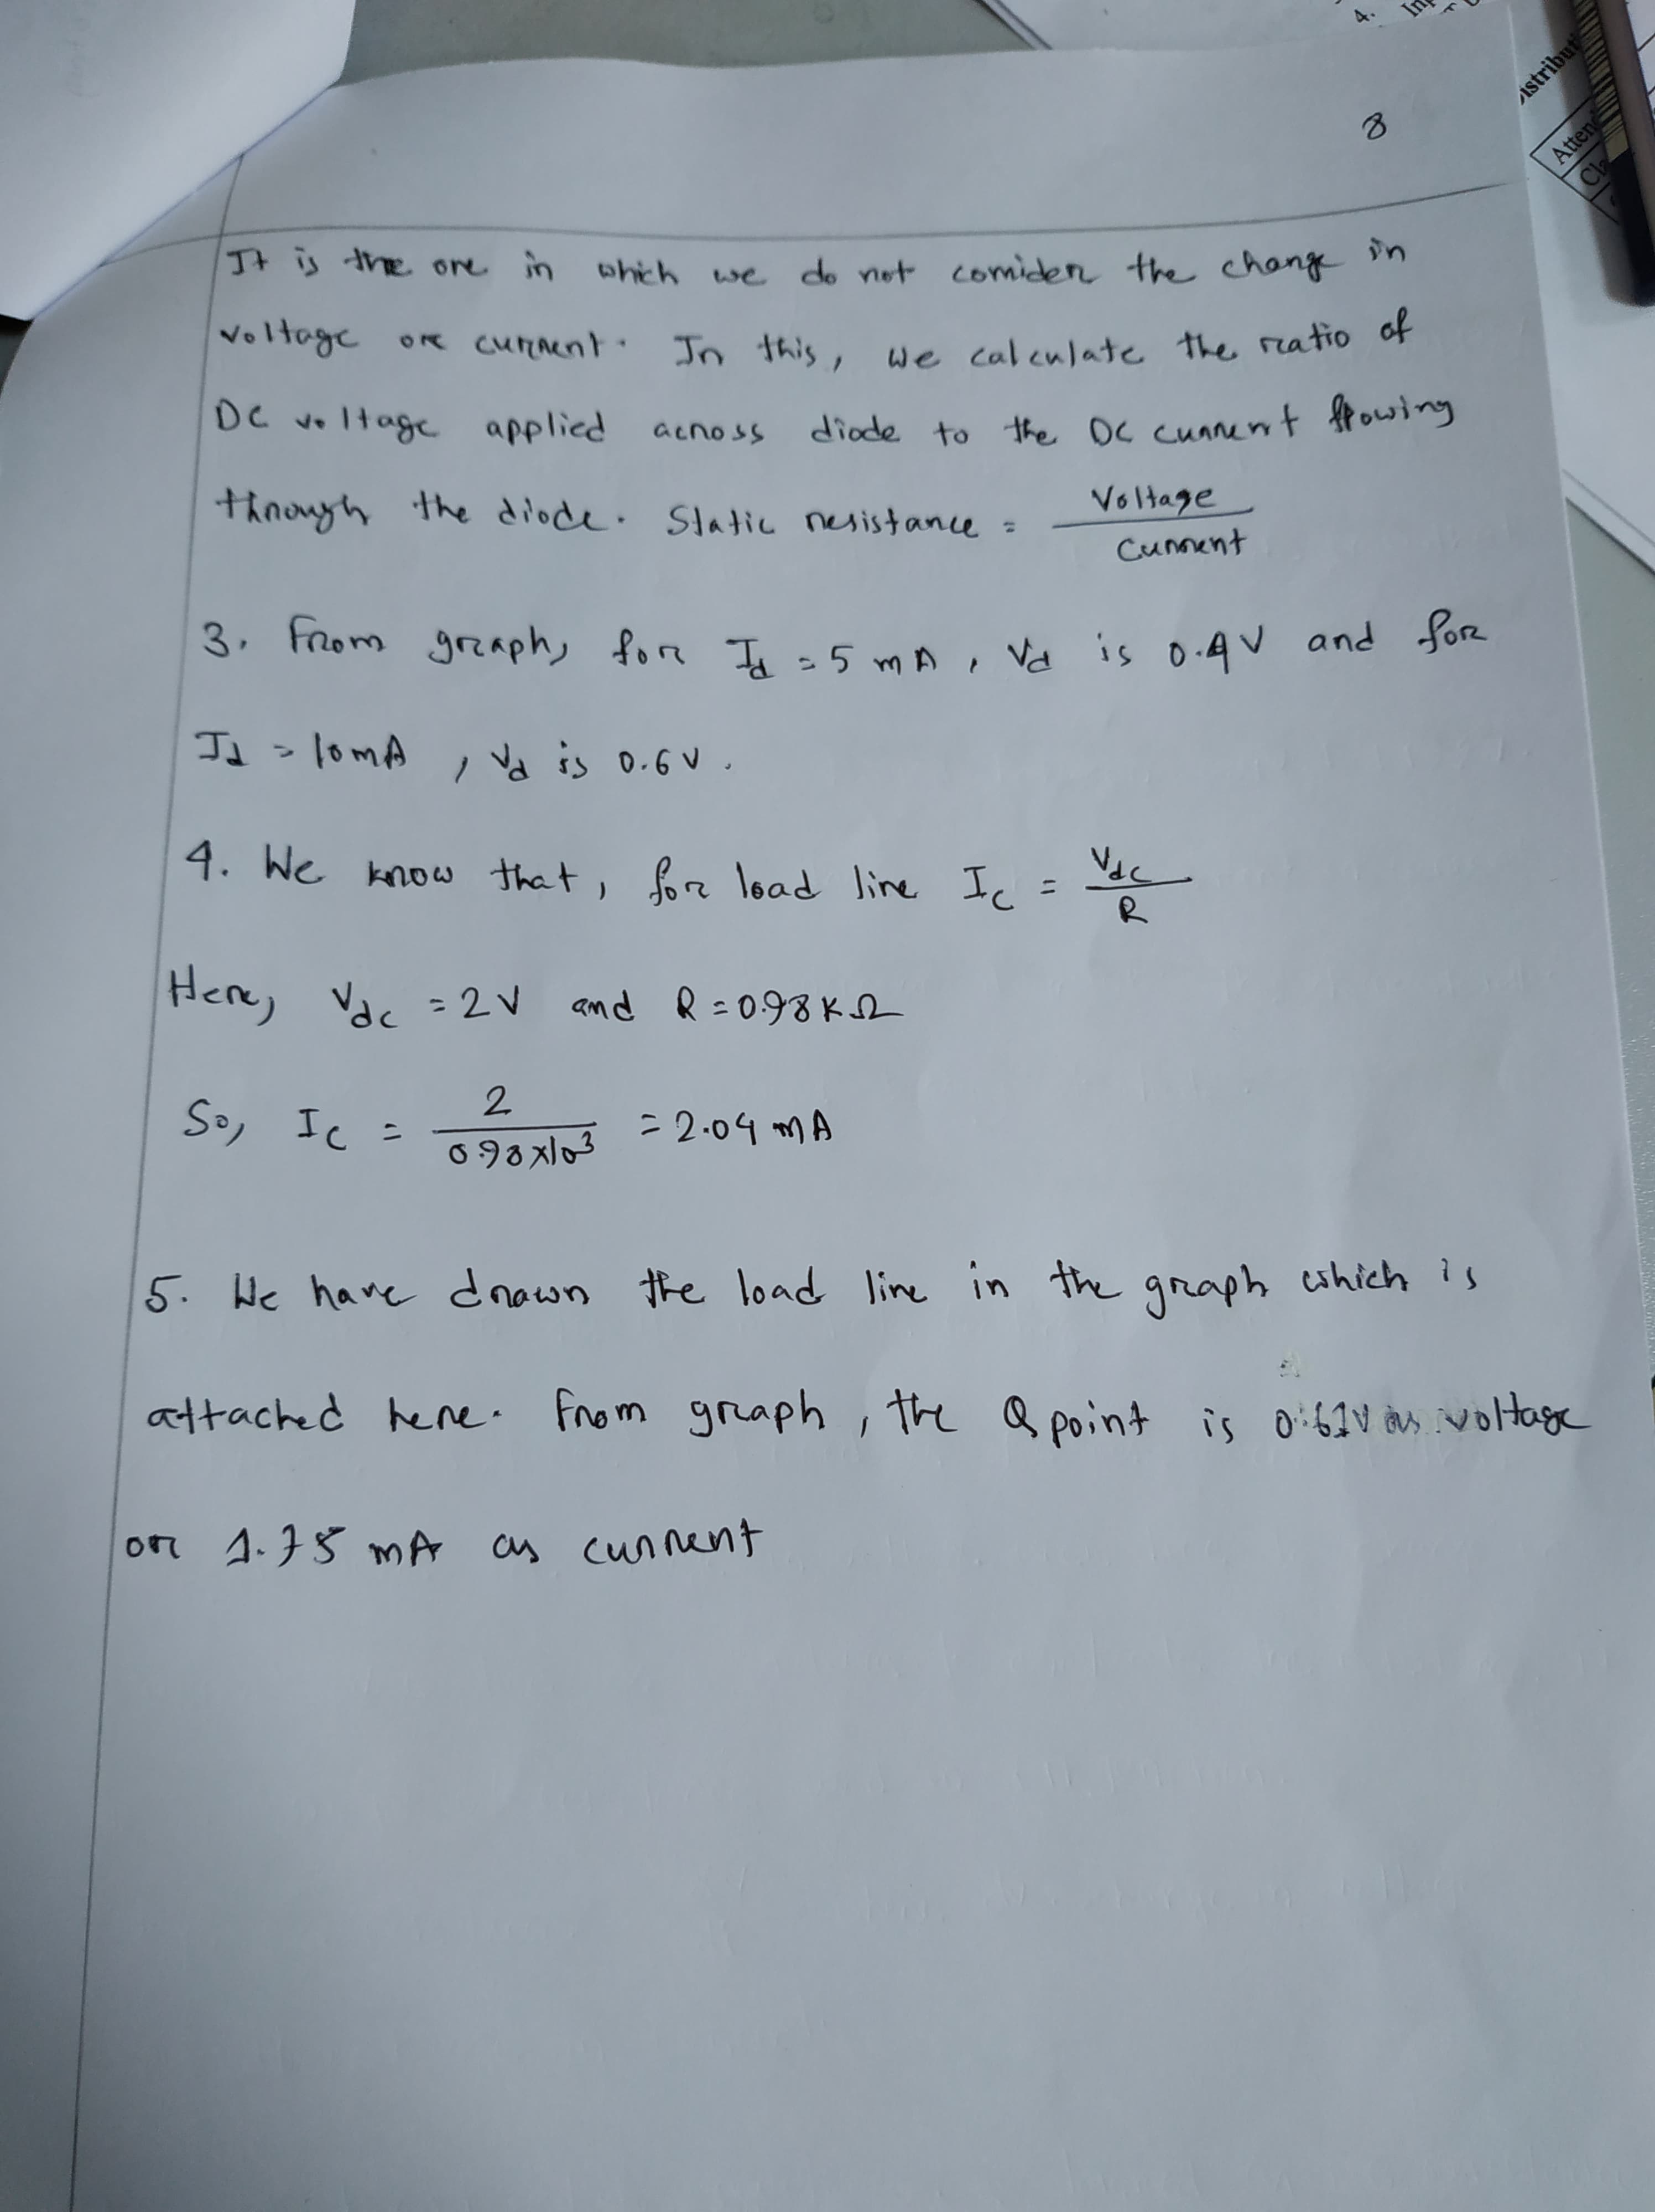 4. Inp
istribut
Atten
Cla
8
It is the one in which we do not comider the change in
voltage or current. In this, we calculate the ratio of
DC voltage applied across diode to the DC current flowing
through the diode. Static resistance = Voltage / Current
3. From graph, for Id = 5 mA, Vd is 0.4V and for
Id = 10mA, Vd is 0.6V.
4. We know that, for load line IC = Vdc / R
Here, Vdc = 2V and R = 0.98KΩ
So, IC = 2 / 0.98×10³ = 2.04 mA
5. We have drawn the load line in the graph which is
attached here. From graph, the Q point is 0.61V as voltage
or 1.75 mA as current